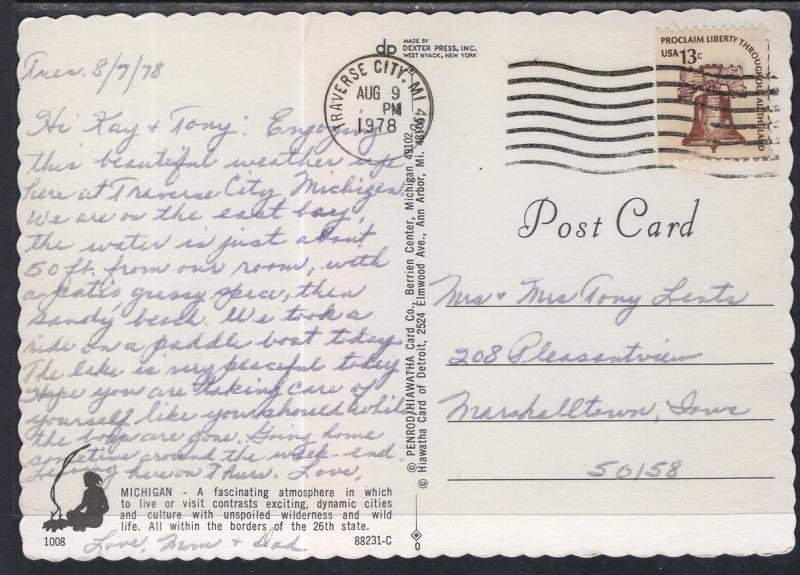 Tues. 8/7/78
Hi Kay & Tony: Enjoying
this beautiful weather up
here at Traverse City, Michigan.
We are on the east bay,
the water is just about
50 ft. from our room, with
a patio grassy space, then
sandy beach. We took a
ride on a paddle boat today.
The lake is very peaceful today
Hope you are taking care of
yourself like you should while
the boys are gone. Going home
sometime around the week-end.
leaving here on Thurs. Love,
MICHIGAN - A fascinating atmosphere in which
to live or visit contrasts exciting, dynamic cities
and culture with unspoiled wilderness and wild
life. All within the borders of the 26th state.
1008
Love, Mom & Dad
88231-C
dp
MADE BY
DEXTER PRESS, INC.
WEST NYACK, NEW YORK
TRAVERSE CITY, MI
AUG 9
PM
1978
© PENROD/HIAWATHA Card Co., Berrien Center, Michigan 49102
© Hiawatha Card of Detroit, 2524 Elmwood Ave., Ann Arbor, Mi. 48104
0
PROCLAIM LIBERTY THROUGHOUT ALL THE LAND
USA 13c
Post Card
Mrs & Mrs Tony Lents
208 Pleasantview
Marshalltown, Iowa
50158